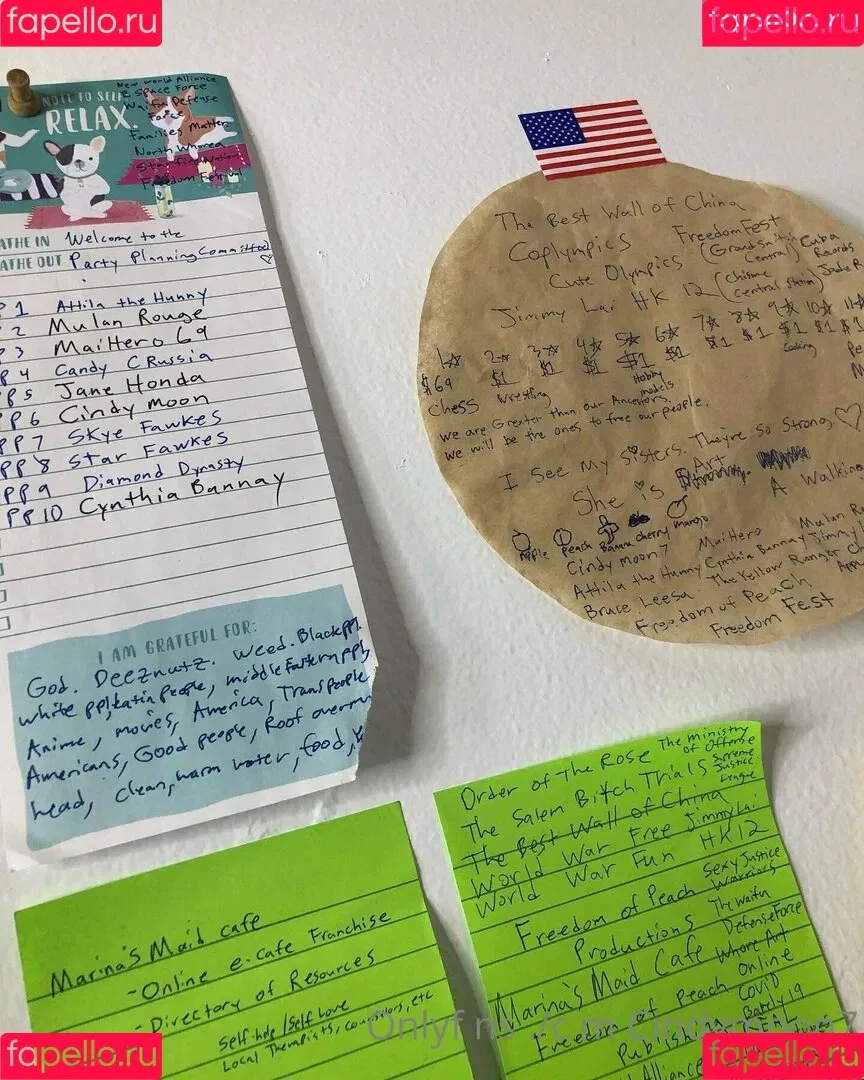 fapello.ru
fapello.ru
NOTE TO SELF
RELAX.
New World Alliance
& Space Force
Waifu Defense
Force
Families Matter
North Whorea
Starfire Nation
Freedom Festival
ATHE IN Welcome to the
ATHE OUT Party Planning Committee
PP 1 Attila the Hunny
2 Mulan Rouge
PP 3 MaiHero 69
PP 4 Candy CRussia
PP 5 Jane Honda
PP 6 Cindy Moon
PP 7 Skye Fawkes
PP 8 Star Fawkes
PP 9 Diamond Dynasty
PP 10 Cynthia Bannay
I AM GRATEFUL FOR:
God. Deeznutz. Weed. Black ppl.
white ppl, Latin people, middle Eastern ppl,
Anime, movies, America, Trans people
Americans, Good people, Roof over my
head, clean, warm water, food,
The Best Wall of China
Coplympics
FreedomFest
Cute Olympics
(Grandsnitch
Central)
Cuba
Records
Jimmy Lai HK 12
(chisme
central station)
Jade R
1☆ 2☆ 3☆ 4☆ 5☆ 6☆ 7☆ 8☆ 9☆ 10☆ 11☆
$69 $1 $1 $1 $1 $1 $1 $1 $1 $1 $1
Chess
Wrestling
Hobby
models
Cooking
we are Greater than our Ancestors.
we will be the ones to free our people.
I See my sisters. They're so Strong.
She is Art
A Walking
Apple Peach Banana cherry mango
Cindy moon 7 MaiHero Mulan Ro
Attila the Hunny Cynthia Bannay Jimmy L
Bruce Leesa The Yellow Ranger
Freedom of Peach
Freedom Fest
Marina's Maid cafe
- Online e-cafe Franchise
- Directory of Resources
Self-help/Self Love
Local Therapists, counselors, etc
Order of The Rose The ministry
of Offense
The Salem Bitch Trials Supreme
Justice
League
The Best Wall of China
World War Free Jimmy Lai
World War Fun HK 12
Freedom of Peach Sexy Justice
Warriors
Productions The waifu
Defense Force
Marina's Maid Cafe Whore Art
Freedom of Peach Online
Publishing COVID
Barely 19
Alliance
fapello.ru
fapello.ru